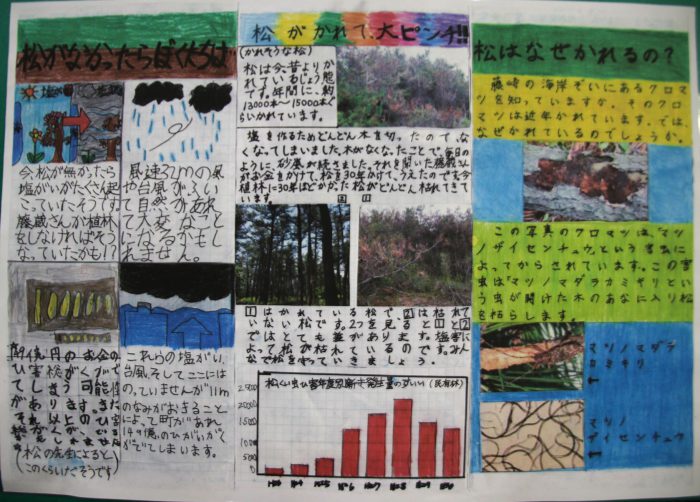 松がなかったらぼくたちは
今、松が無かったら
塩がいがたくさん起
こっていたそうです
藤蔵さんが植林
をしなければそう
なっていたかも!?
風速32mの風
や台風がふい
て自然があれ
て大変なこと
になるかもし
れません。
円のお金の
ひ害松がくがで
てしまう可能性
があります。また
それ以上のひ害
松の先生によると
(このくらいだそうです)
これらの塩がい、
台風、そしてここには
のっていませんが11m
のなみがおきること
によって町があれ
149億のひがいがく
がでてしまいます。
松がかれて、大ピンチ!!
(かれそうな松)
松は今、昔よりか
れているじょう態
です。年間に、約
13000本〜15000本ぐ
らいかれています。
塩を作るためどんどん木を切ったので、な
くなってしまいました。木がなくなったことで、毎日の
ように砂嵐が続きました。それを聞いた藤蔵さん
がお金をかけて、松を30年かけて、うえたのです。今
植林に30年ほどかかった松がどんどん枯れてきて
います。
1 2
1はかれている松で、2は枯れて
いない松です。2つを見ると1と2
ではとても差があります。塩害に
よって松が枯れているのです。みん
なで松を守っていきましょう。
松くい虫ひ害年度別新き発生量のすいい(民有林)
25000
20000
15000
10000
5000
0
松はなぜかれるの?
藤崎の海岸ぞいにあるクロマ
ツを知っていますか。そのクロ
マツは近年かれています。では、
なぜかれているのでしょうか。
この写真のクロマツは、「マツ
ノザイセンチュウ」という害虫に
よってからされています。この害
虫は「マツノマダラカミキリ」とい
う虫が開けた木のあなに入り松
を枯らします。
マツノマダラ
カミキリ
↑
マツノ
ザイセンチュウ
↑